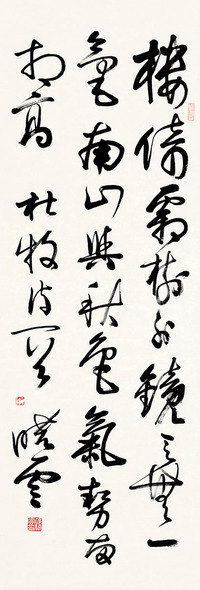 樓倚霜樹外鏡天無一
毫南山與秋色氣勢兩
相高 杜牧詩一首 曉雲